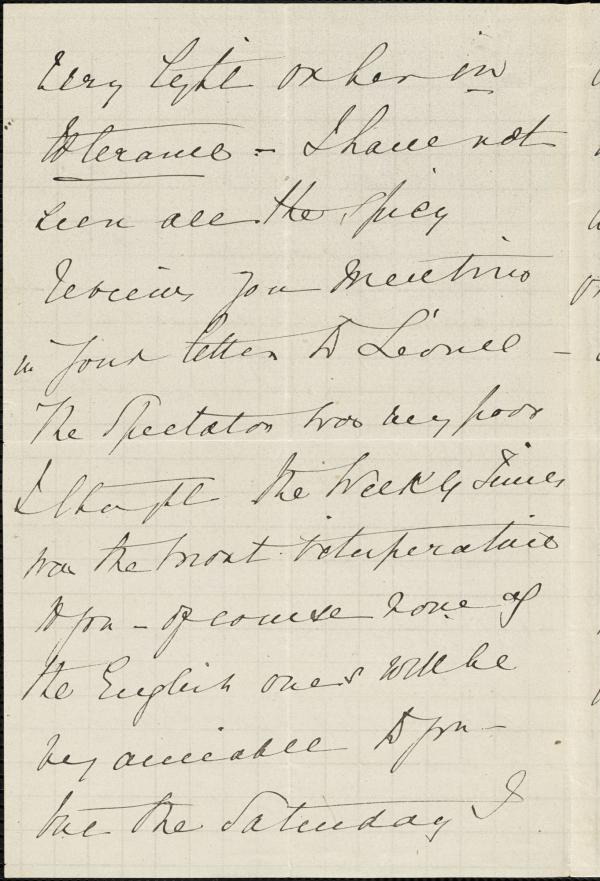 very light on her in
tolerance - I have not
seen all the spicy
reviews you mention
in your letter to Leonel -
The Spectator was very poor
I thought the Weekly Times
was the most vituperative
to you - of course none of
the English ones will be
very amicable to you -
but the Saturday I